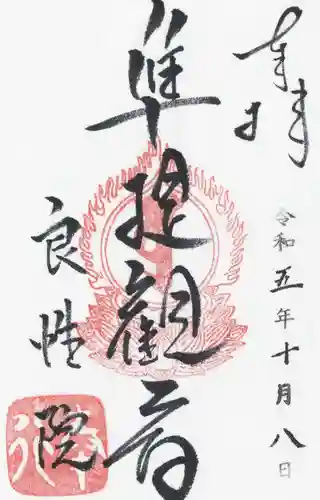 奉拝
令和五年十月八日
准提観音
良性院